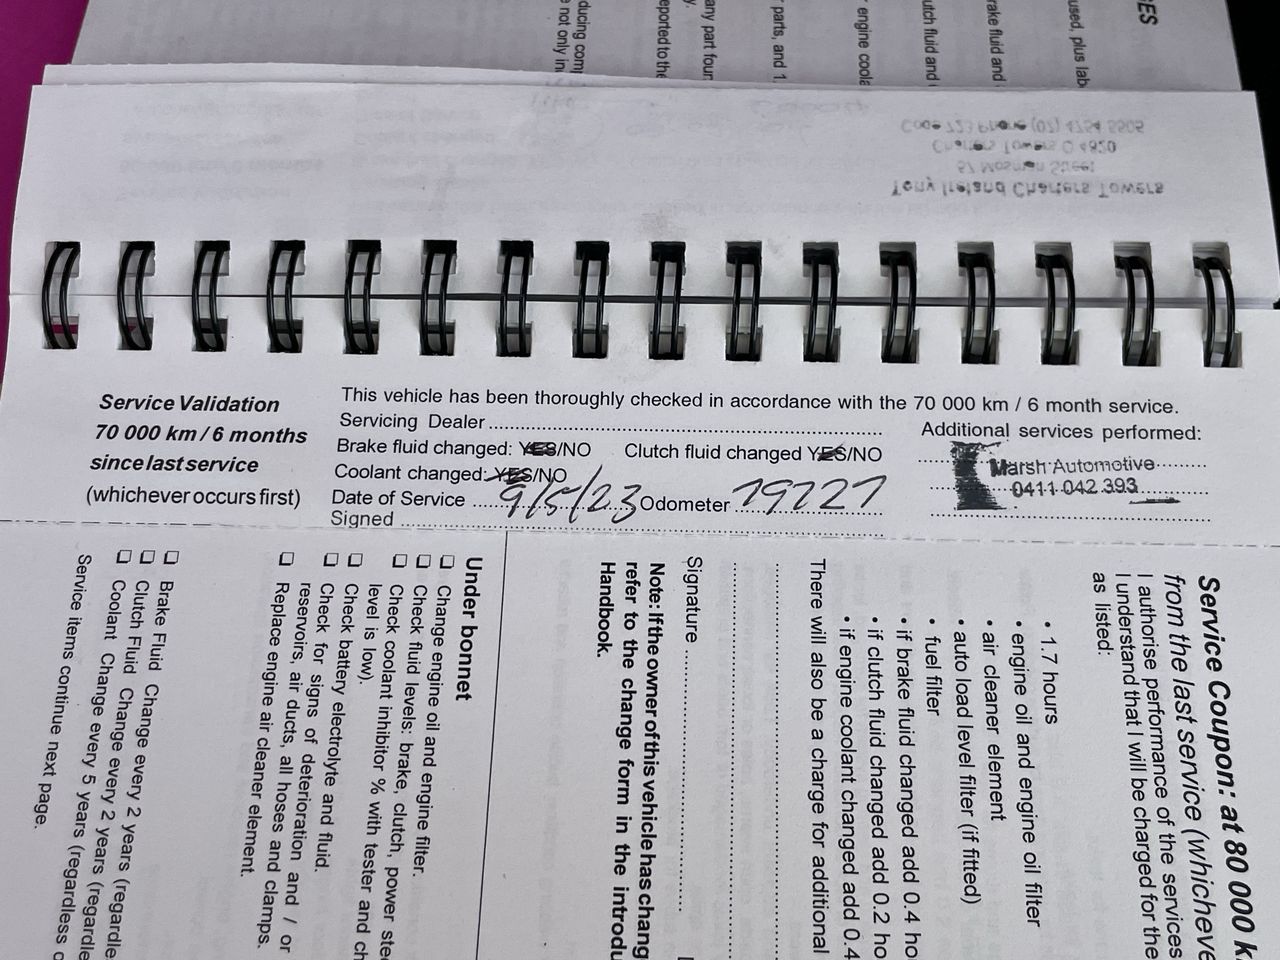 GES
used, plus lab
rake fluid and
utch fluid and
engine coola
parts, and 1
any part four
eported to the
ducing comp
e not only in
Code 723 Phone (07) 4754 5505
Charters Towers Q 4820
Mosman Street
Tony Ireland Charters Towers
Service Validation
70 000 km / 6 months
since last service
(whichever occurs first)
This vehicle has been thoroughly checked in accordance with the 70 000 km / 6 month service.
Servicing Dealer
Brake fluid changed: YES/NO Clutch fluid changed YES/NO
Coolant changed: YES/NO
Date of Service 9/5/23 Odometer 79727
Signed
Additional services performed:
Marsh Automotive
0411 042 393
Service Coupon: at 80 000 k
from the last service (whicheve
I authorise performance of the services
I understand that I will be charged for the
as listed:
• 1.7 hours
• engine oil and engine oil filter
• air cleaner element
• auto load level filter (if fitted)
• fuel filter
• if brake fluid changed add 0.4 ho
• if clutch fluid changed add 0.2 ho
• if engine coolant changed add 0.4
There will also be a charge for additional
Signature
Note: If the owner of this vehicle has chang
refer to the change form in the introdu
Handbook.
Under bonnet
❑ Change engine oil and engine filter.
❑ Check fluid levels: brake, clutch, power stee
❑ Check coolant inhibitor % with tester and ch
level is low).
❑ Check battery electrolyte and fluid.
❑ Check for signs of deterioration and / or
reservoirs, air ducts, all hoses and clamps.
❑ Replace engine air cleaner element.
❑ Brake Fluid Change every 2 years (regardle
❑ Clutch Fluid Change every 2 years (regardle
❑ Coolant Change every 5 years (regardless o
Service items continue next page.